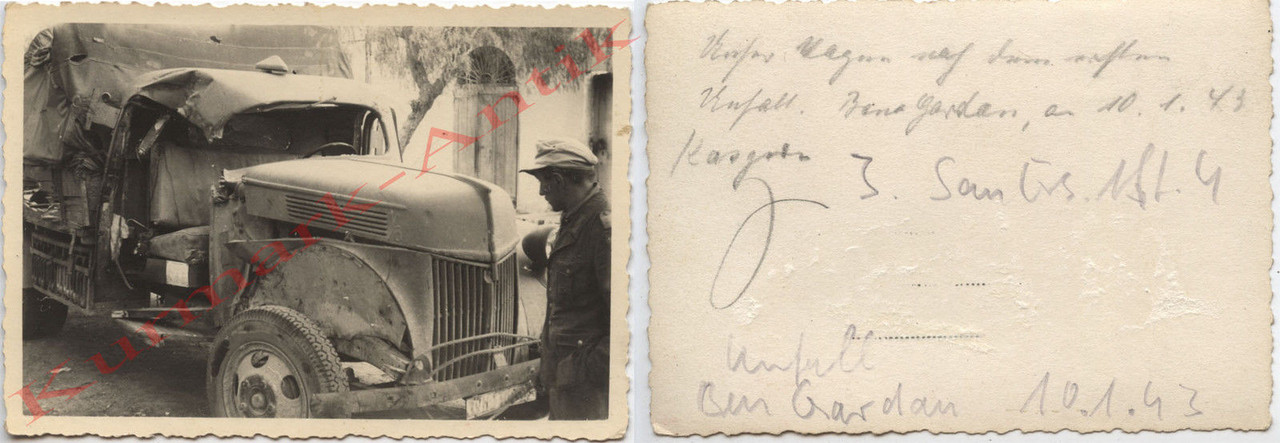 Kurmark-Antik
Unser Wagen nach dem ersten
Unfall. Bengardan, an 10.1.43
3. San Ers. Abt. 4
Unfall
Ben Gardan 10.1.43